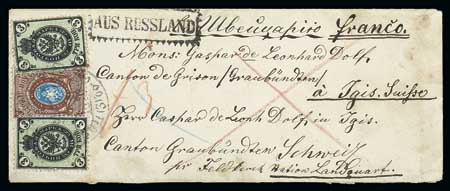 AUS RUSSLAND
Швейцарію Franco.
Mons: Gaspar de Leonhard Dolf,
Canton de Grison/Graubündten/
à Igis. Suisse
Herr Caspar de Leonh Dolf, in Igis.
Canton Graubündten Schweiz
pr Feldkirch Station Landquart.
3
3
3
3